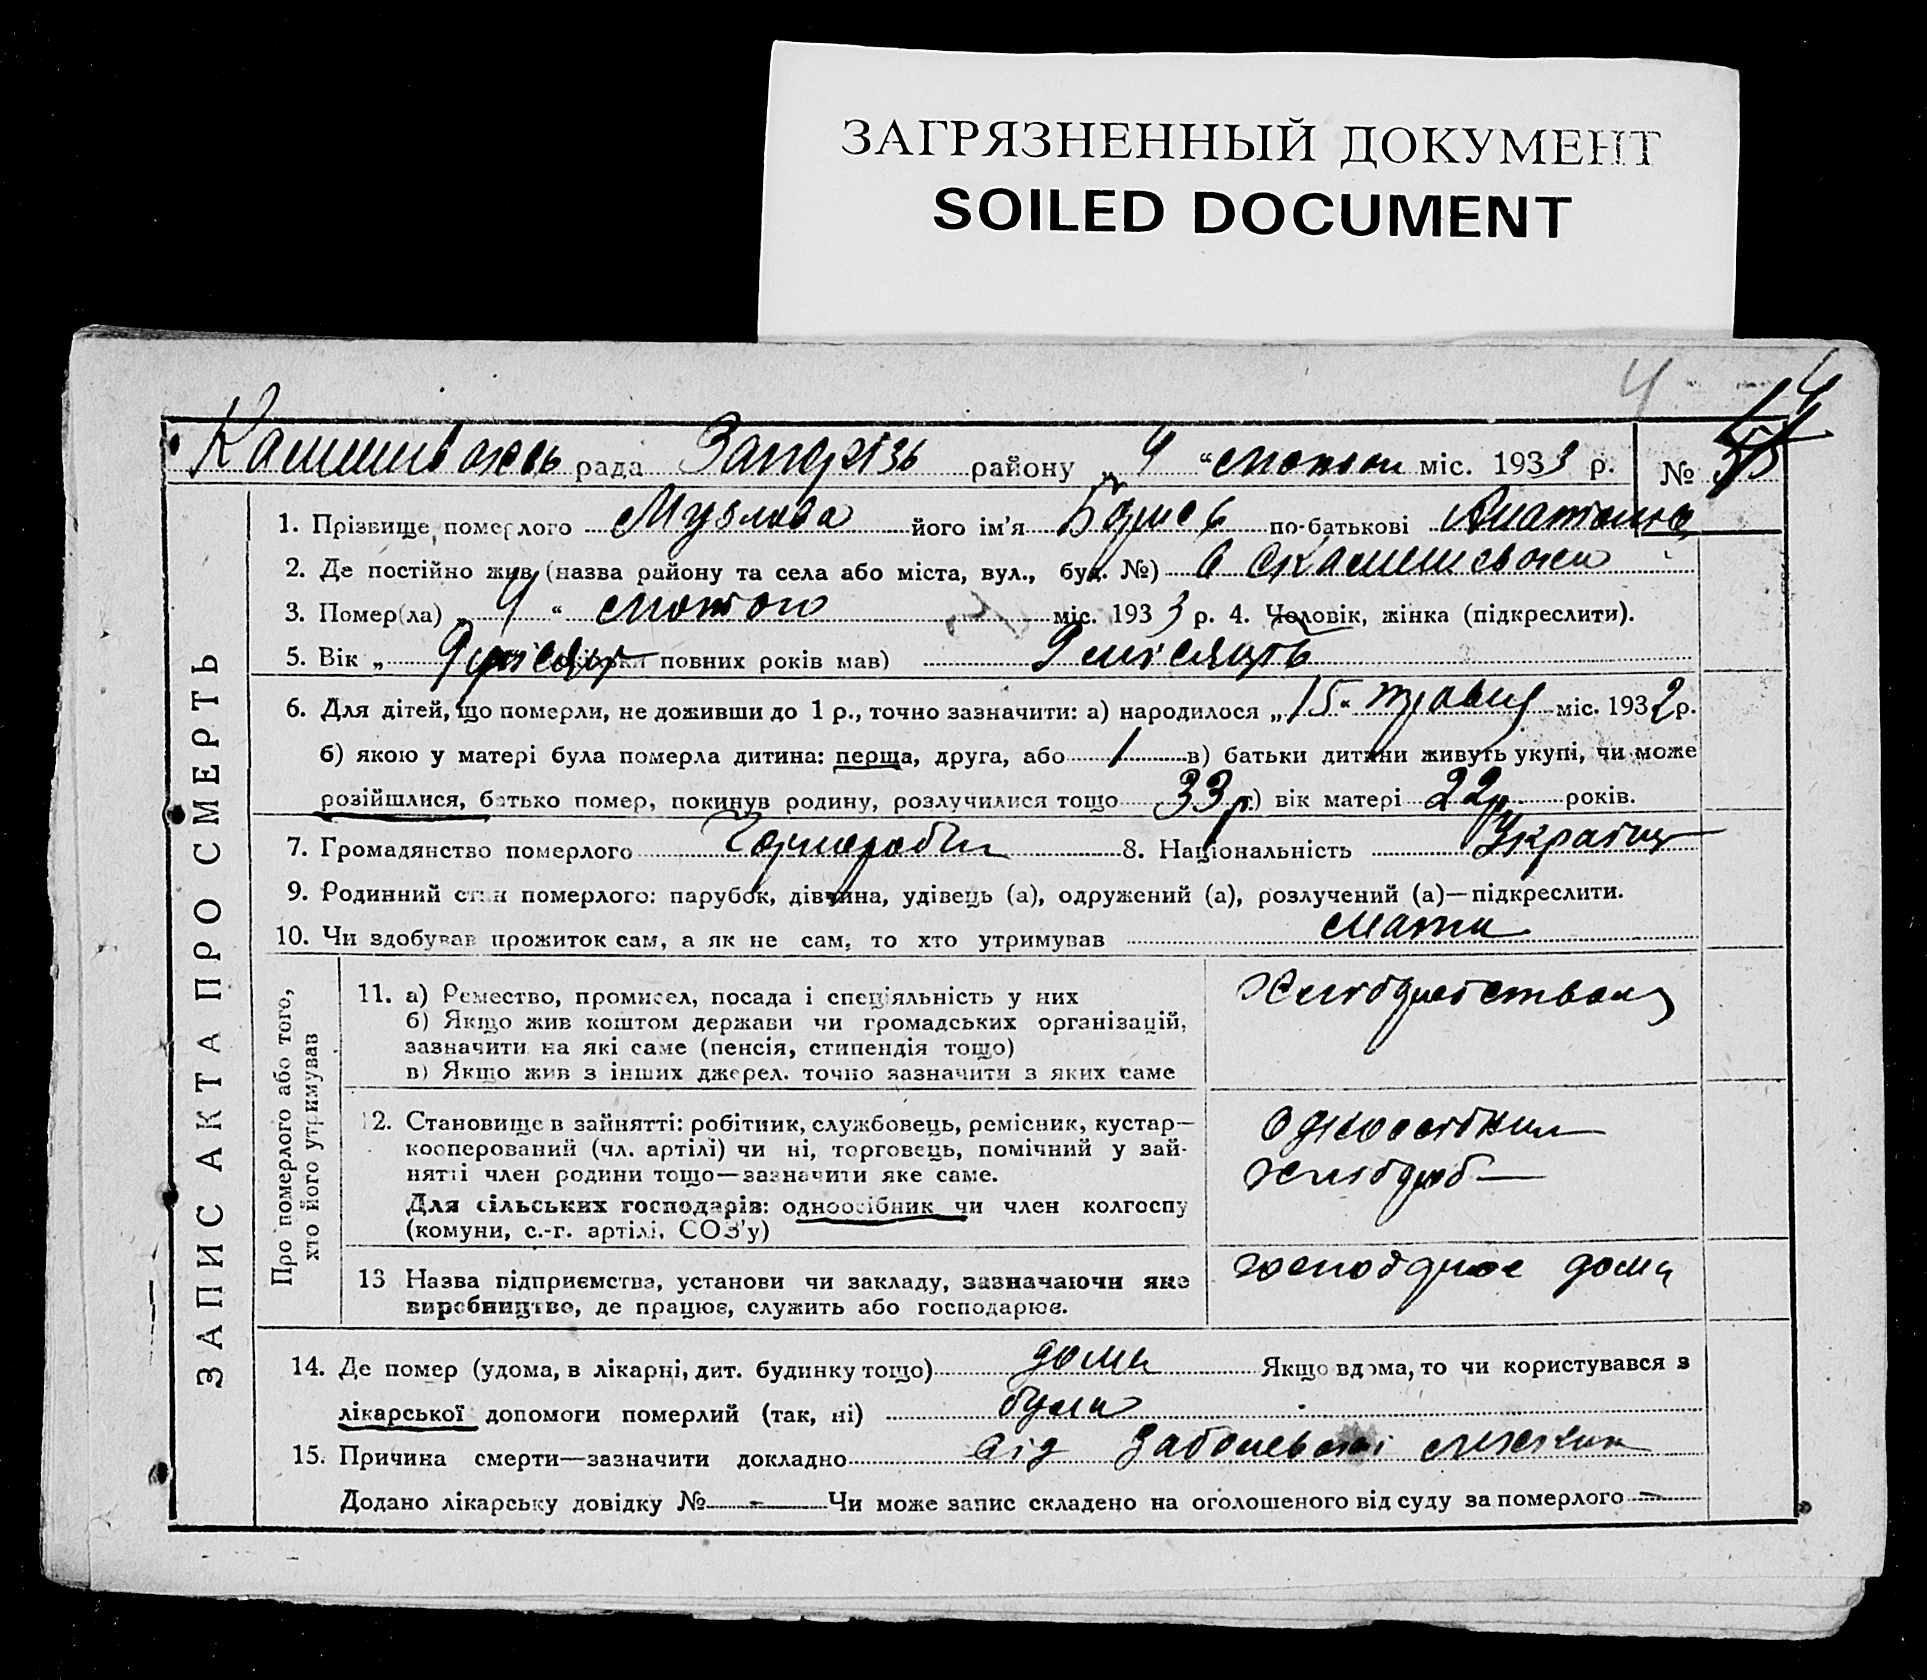 ЗАГРЯЗНЕННЫЙ ДОКУМЕНТ
SOILED DOCUMENT
4
рада району „4“ лютого міс. 1933 р. №
ЗАПИС АКТА ПРО СМЕРТЬ
1. Прізвище померлого його ім'я по-батькові
2. Де постійно жив (назва району та села або міста, вул., буд. №)
3. Помер(ла) „4“ лютого міс. 1933 р. 4. Чоловік, жінка (підкреслити).
5. Вік „ повних років мав) 9 місяців
6. Для дітей, що померли, не доживши до 1 р., точно зазначити: а) народилося „15“ травня міс. 1932 р.
б) якою у матері була померла дитина: перша, друга, або 1 в) батьки дитини живуть укупі, чи може
розійшлися, батько помер, покинув родину, розлучилися тощо 33 р. г) вік матері 22 р. років.
7. Громадянство померлого 8. Національність Українц
9. Родинний стан померлого: парубок, дівчина, удівець (а), одружений (а), розлучений (а)—підкреслити.
10. Чи здобував прожиток сам, а як не сам, то хто утримував мати
Про померлого або того,
хто його утримував
11. а) Ремество, промисел, посада і спеціяльність у них
б) Якщо жив коштом держави чи громадських організацій,
зазначити на які саме (пенсія, стипендія тощо)
в) Якщо жив з інших джерел. точно зазначити з яких саме
12. Становище в зайнятті: робітник, службовець, ремісник, кустар—
кооперований (чл. артілі) чи ні, торговець, помічний у зай-
нятті член родини тощо—зазначити яке саме.
Для сільських господарів: одноосібник чи член колгоспу
(комуни, с.-г. артілі, СОЗ'у)
13 Назва підприємства, установи чи закладу, зазначаючи яке
виробництво, де працює, служить або господарює.
14. Де помер (удома, в лікарні, дит. будинку тощо) дома Якщо вдома, то чи користувався з
лікарської допомоги померлий (так, ні)
15. Причина смерти—зазначити докладно від
Додано лікарську довідку № - Чи може запис складено на оголошеного від суду за померлого -